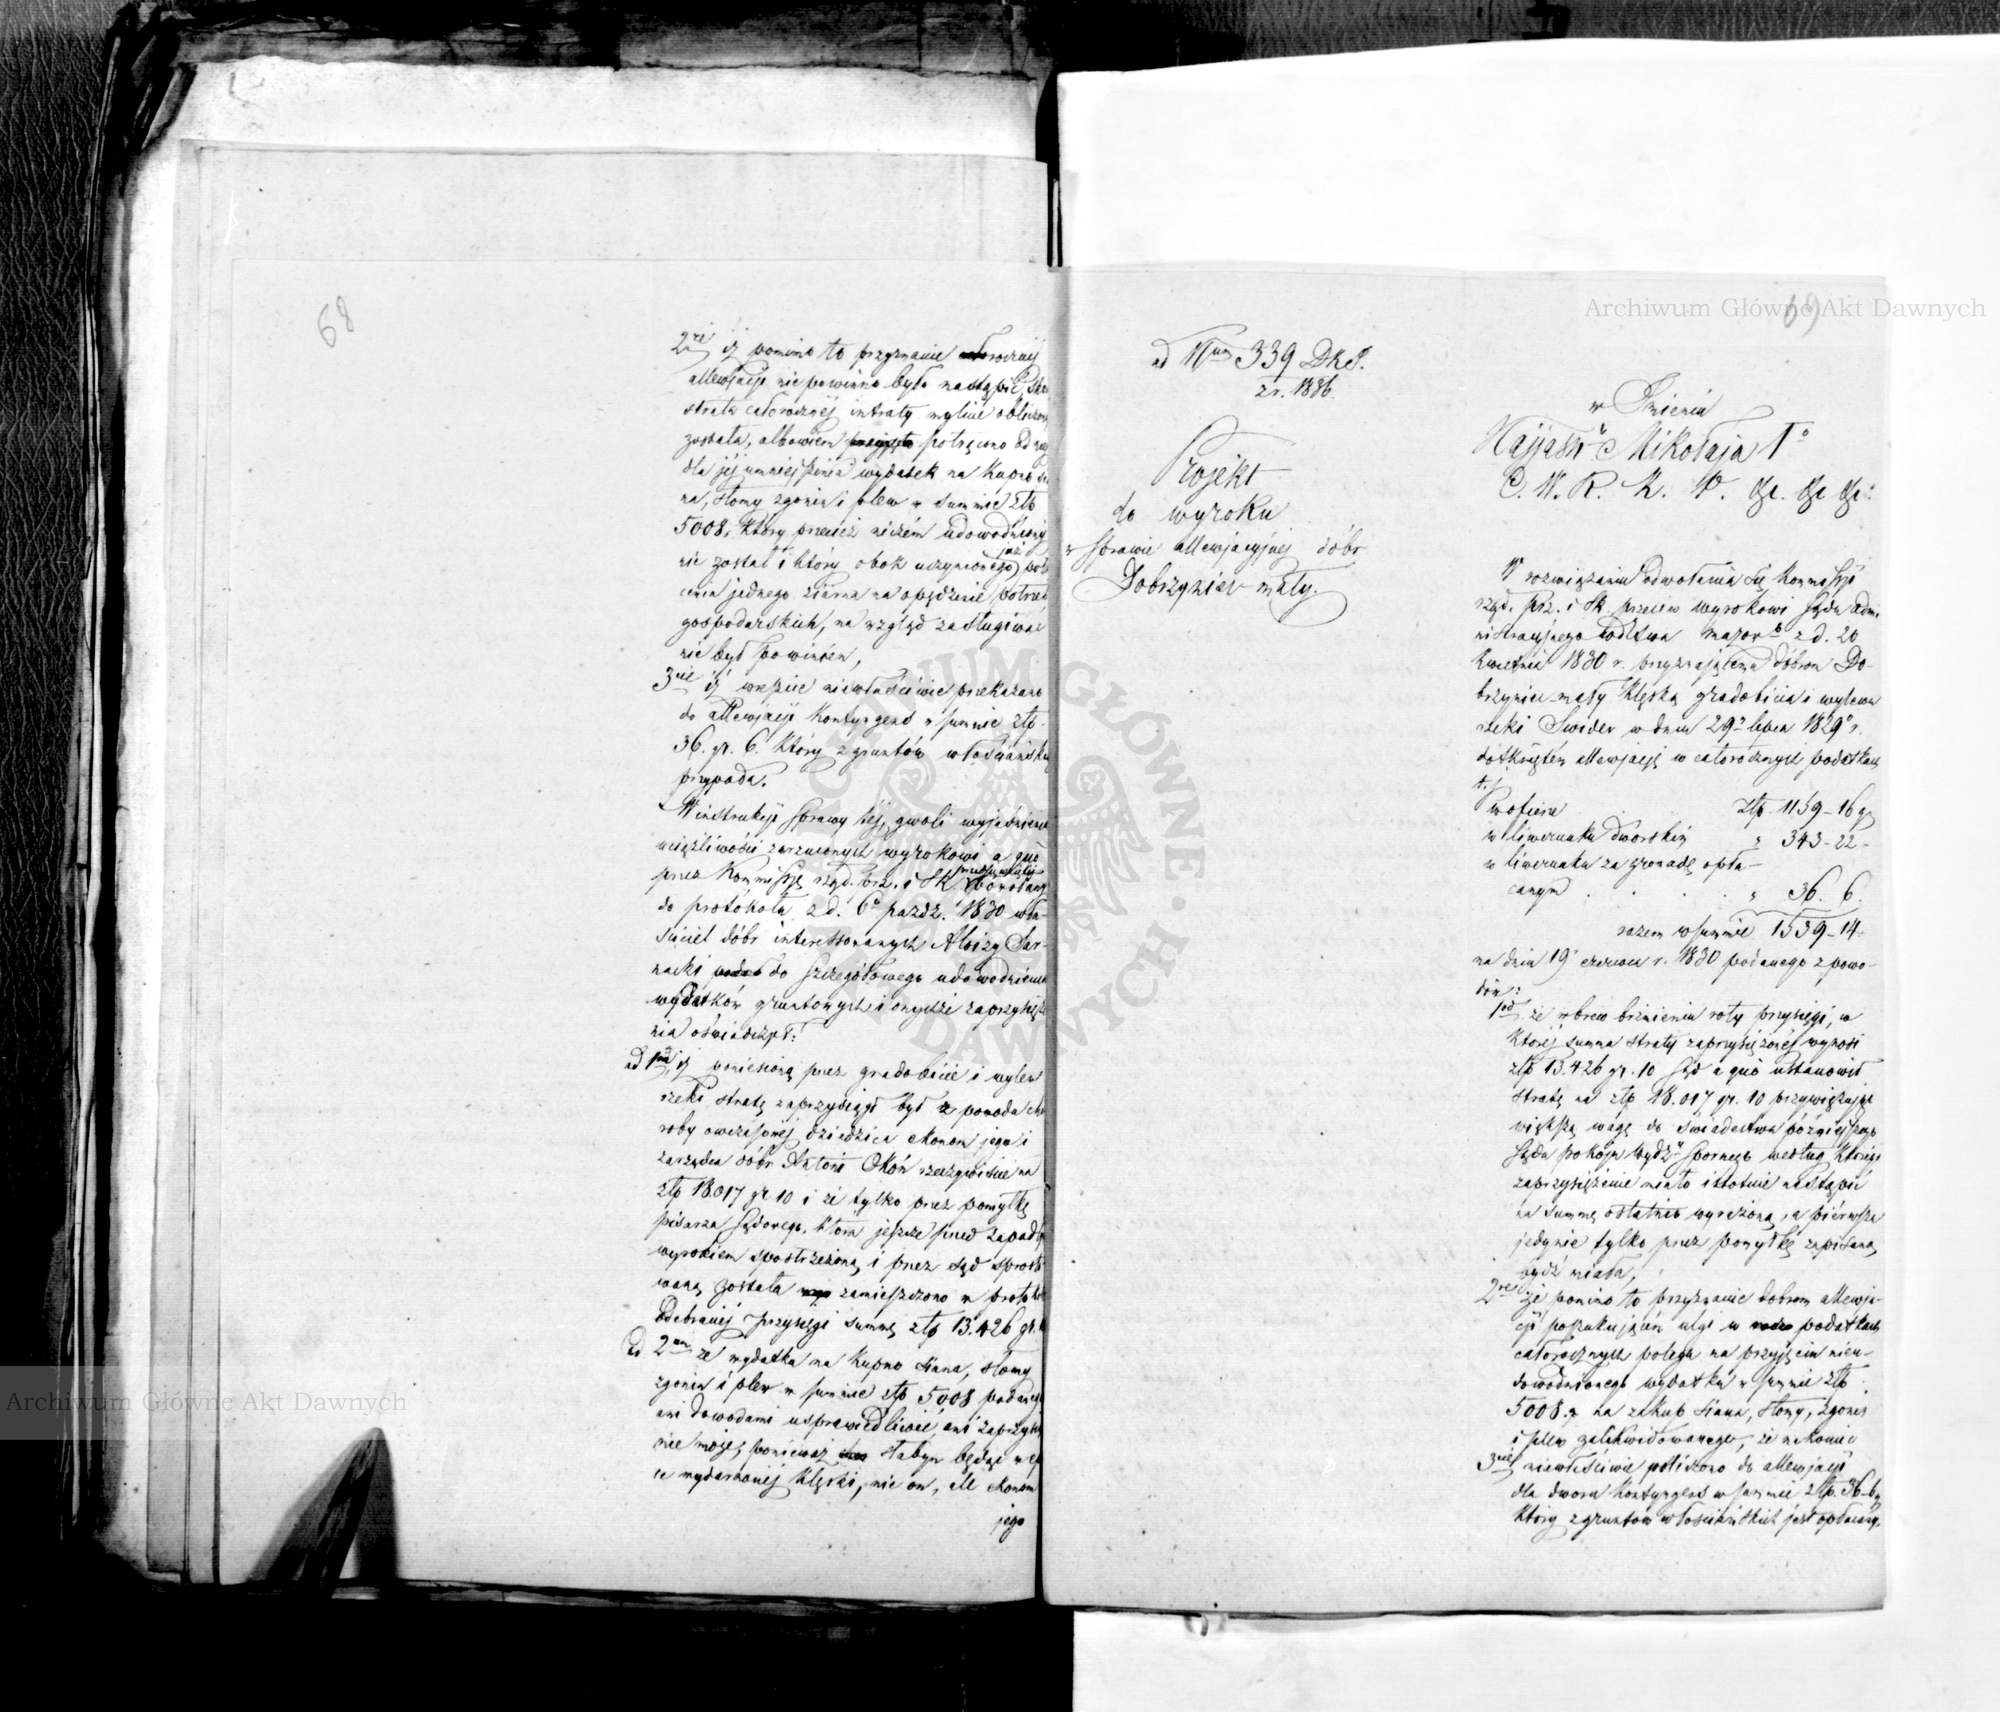 68
2re iż pomimo to przyznanie całorocznej
allewjacyi nie powinno było nastąpić,
strata całorocznej intraty mylnie obliczoną
została, albowiem przyjęto potrącono od niej
dla jej umniejszenia wydatek na kupno sia
na, słomy zgonin i plew w summie złp
5008, który przecież niczém udowodniony
nie został i który obok uczynionego już potrą
cenia jednego ziarna na opędzenie potrzeb
gospodarskich, na wzgląd zasługiwać
nie był powinien,
3cie iż wreszcie niewłaściwie przekazano
do allewjacyi kontyngens w summie złp.
36. gr. 6. który z gruntów włościańskich
przypada.
W instrukcyi sprawy téj, gwoli wyjaśnienia
uciążliwości zarzuconych wyrokowi a quo
przez Kommissyę rząd. prz. i Sk. powołany
do protokołu z d. 6o paźdz. 1830 wła-
ściciel dóbr interessowanych Aloizy Sar-
nacki podał do szczegółowego udowodnienia
wydatków gruntowych i onychże zaprzysięże
nia oświadczył:
ad 1m, iż poniesioną przez gradobicie i wylew
rzeki stratę zaprzysiągł był z powodu cho
roby owczesnej dziedzica ekonom jego i
zarządca dóbr Antoni Okoń rzeczywiście na
złp 18.017 gr 10 i że tylko przez pomyłkę
pisarza sądowego, która jeszcze przed zapadłym
wyrokiem spostrzeżoną i przez sąd sprosto
waną została zamieszczono w protokole
odebranej przysięgi summę złp 13.426 gr. 10
ad 2um że wydatku na kupno siana, słomy
zgonin i plew w summie złp 5008 podanego
ani dowodami usprawiedliwić, ani zaprzysiądz
nie może, ponieważ słabym będąc w epo
ce wydarzonej klęski, nie on, ale ekonom
jego
69
ad Num 339 DKS.
z r. 1836.
Projekt
do wyroku
w sprawie allewjacyjnej dóbr
Dobrzyniec mały.
w Imieniu
Najjaśn. Mikołaja Io
C. W. R. K. P. &c. &c &c:
W rozwiązaniu odwołania się Kommissyi
rząd. prz. i Sk. przeciw wyrokowi Sądu Admi
nistracyjnego wdztwa mazow. z d. 20
kwietnia 1830 r. przyznającemu dobrom Do-
brzyniec mały klęską gradobicia i wylewu
rzeki Świder w dniu 29o lipca 1829o r.
dotkniętém allewjacyę w całorocznych podatkach
t. j.
w ofierze złp. 1159-16 gr
w liwerunku dworskim " 343-22-
w liwerunku za gromadę opła-
canym . . . . " 36. 6.
razem w summie 1539-14-
na dniu 19 czerwca r. 1830 podanego z powo-
dów:
1od że wbrew brzmieniu roty przysięgi, w
której summa straty zaprzysiężonej wynosi
złp 13.426 gr. 10 Sąd a quo ustanowił
stratę na złp 18.017 gr. 10 przywiązując
większą wagę do świadectwa późniejszego
Sądu pokoju wydz. spornego według którego
zaprzysiężenie miało istotnie nastąpić
na summę ostatnio wyrażoną, a pierwsza
jedynie tylko przez pomyłkę zapisaną
bydź miała,
2re że pomimo to przyznanie dobrom allewja-
cyi poszukującém ulgi w podatkach
całorocznych polega na przyjęciu nieu-
dowodnionego wydatku w summie złp
5008. na zakup siana, słomy, zgonin
i plew zalikwidowanego, że nakoniec
3cie niewłaściwie policzono do allewjacyi
dla dworu kontyngens w summie złp. 36-6,
który z gruntów włościańskich jest opłacany.
Archiwum Główne Akt Dawnych
Archiwum Główne Akt Dawnych
ARCHIWUM GŁÓWNE AKT DAWNYCH